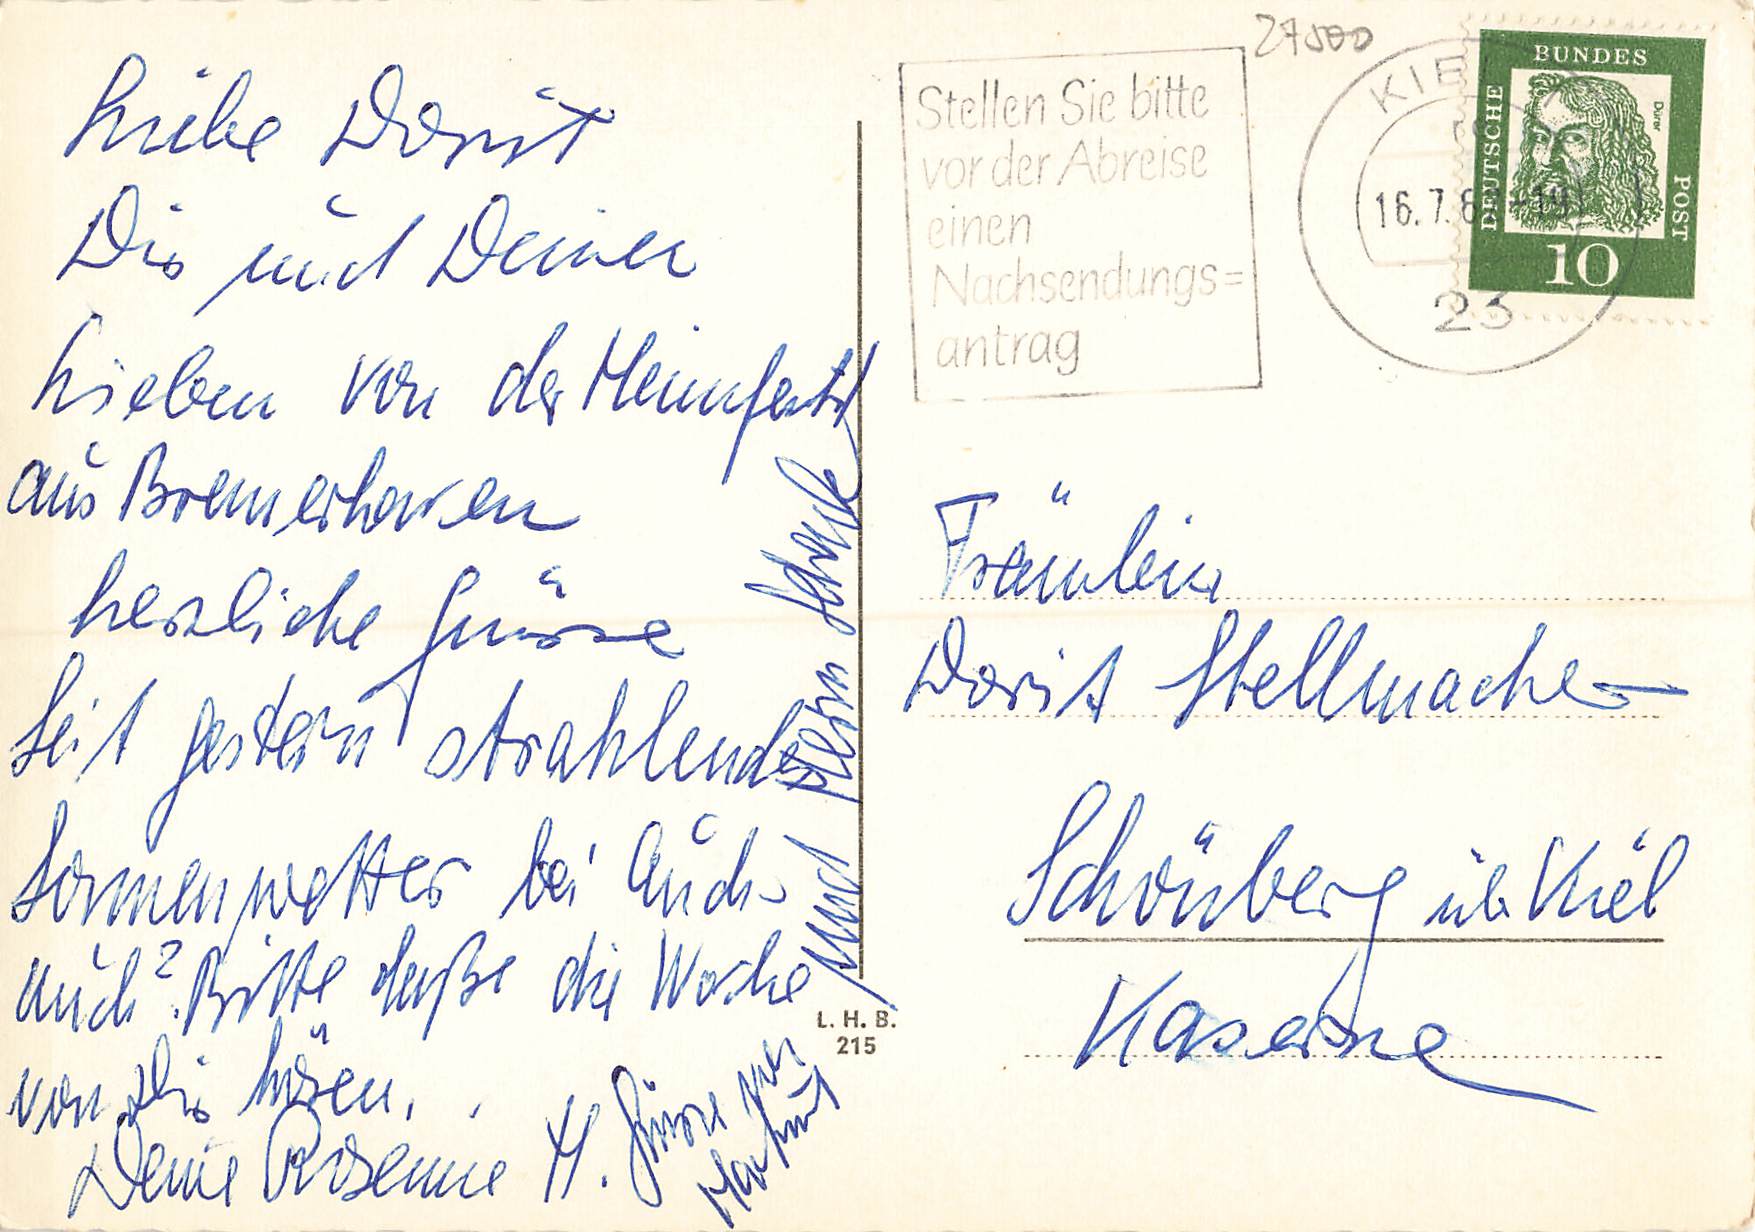 Liebe Dorit
Dir und Deinen
Lieben von der Heimfahrt
aus Bremerhaven
herzliche Grüsse
Seit gestern strahlendes
Sonnenwetter bei Euch
auch? Bitte laße die Woche
von Dir hören.
Deine Rosemie H.
Grüsse von
und Herrn
Stellen Sie bitte
vor der Abreise
einen
Nachsendungs=
antrag
27500
KIEL
16.7.6
23
DEUTSCHE
BUNDES
POST
Dürer
10
Fräulein
Dorit Stellmacher
Schönberg üb Kiel
Kaserne
L. H. B.
215